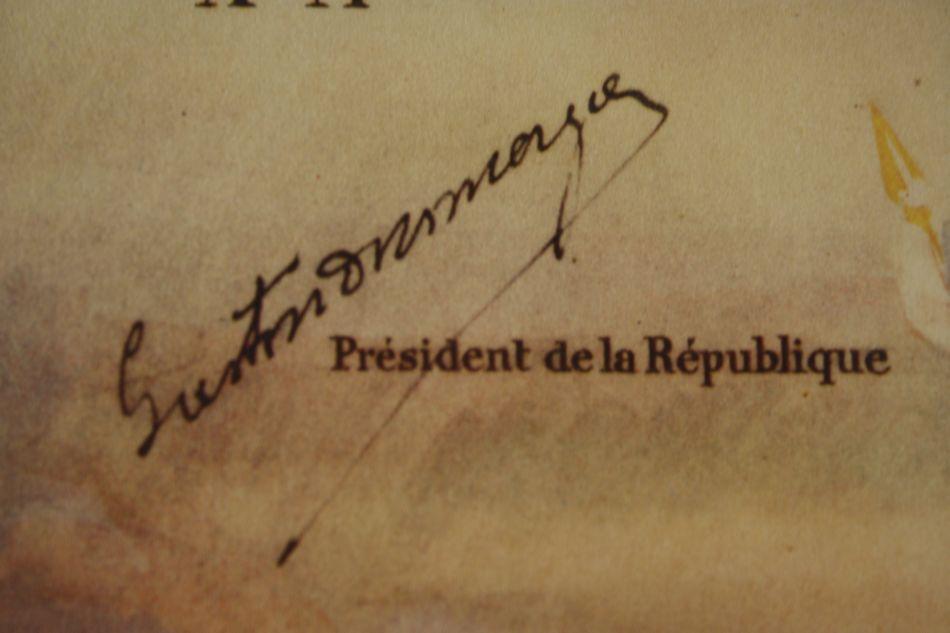 Gaston Doumergue
Président de la République